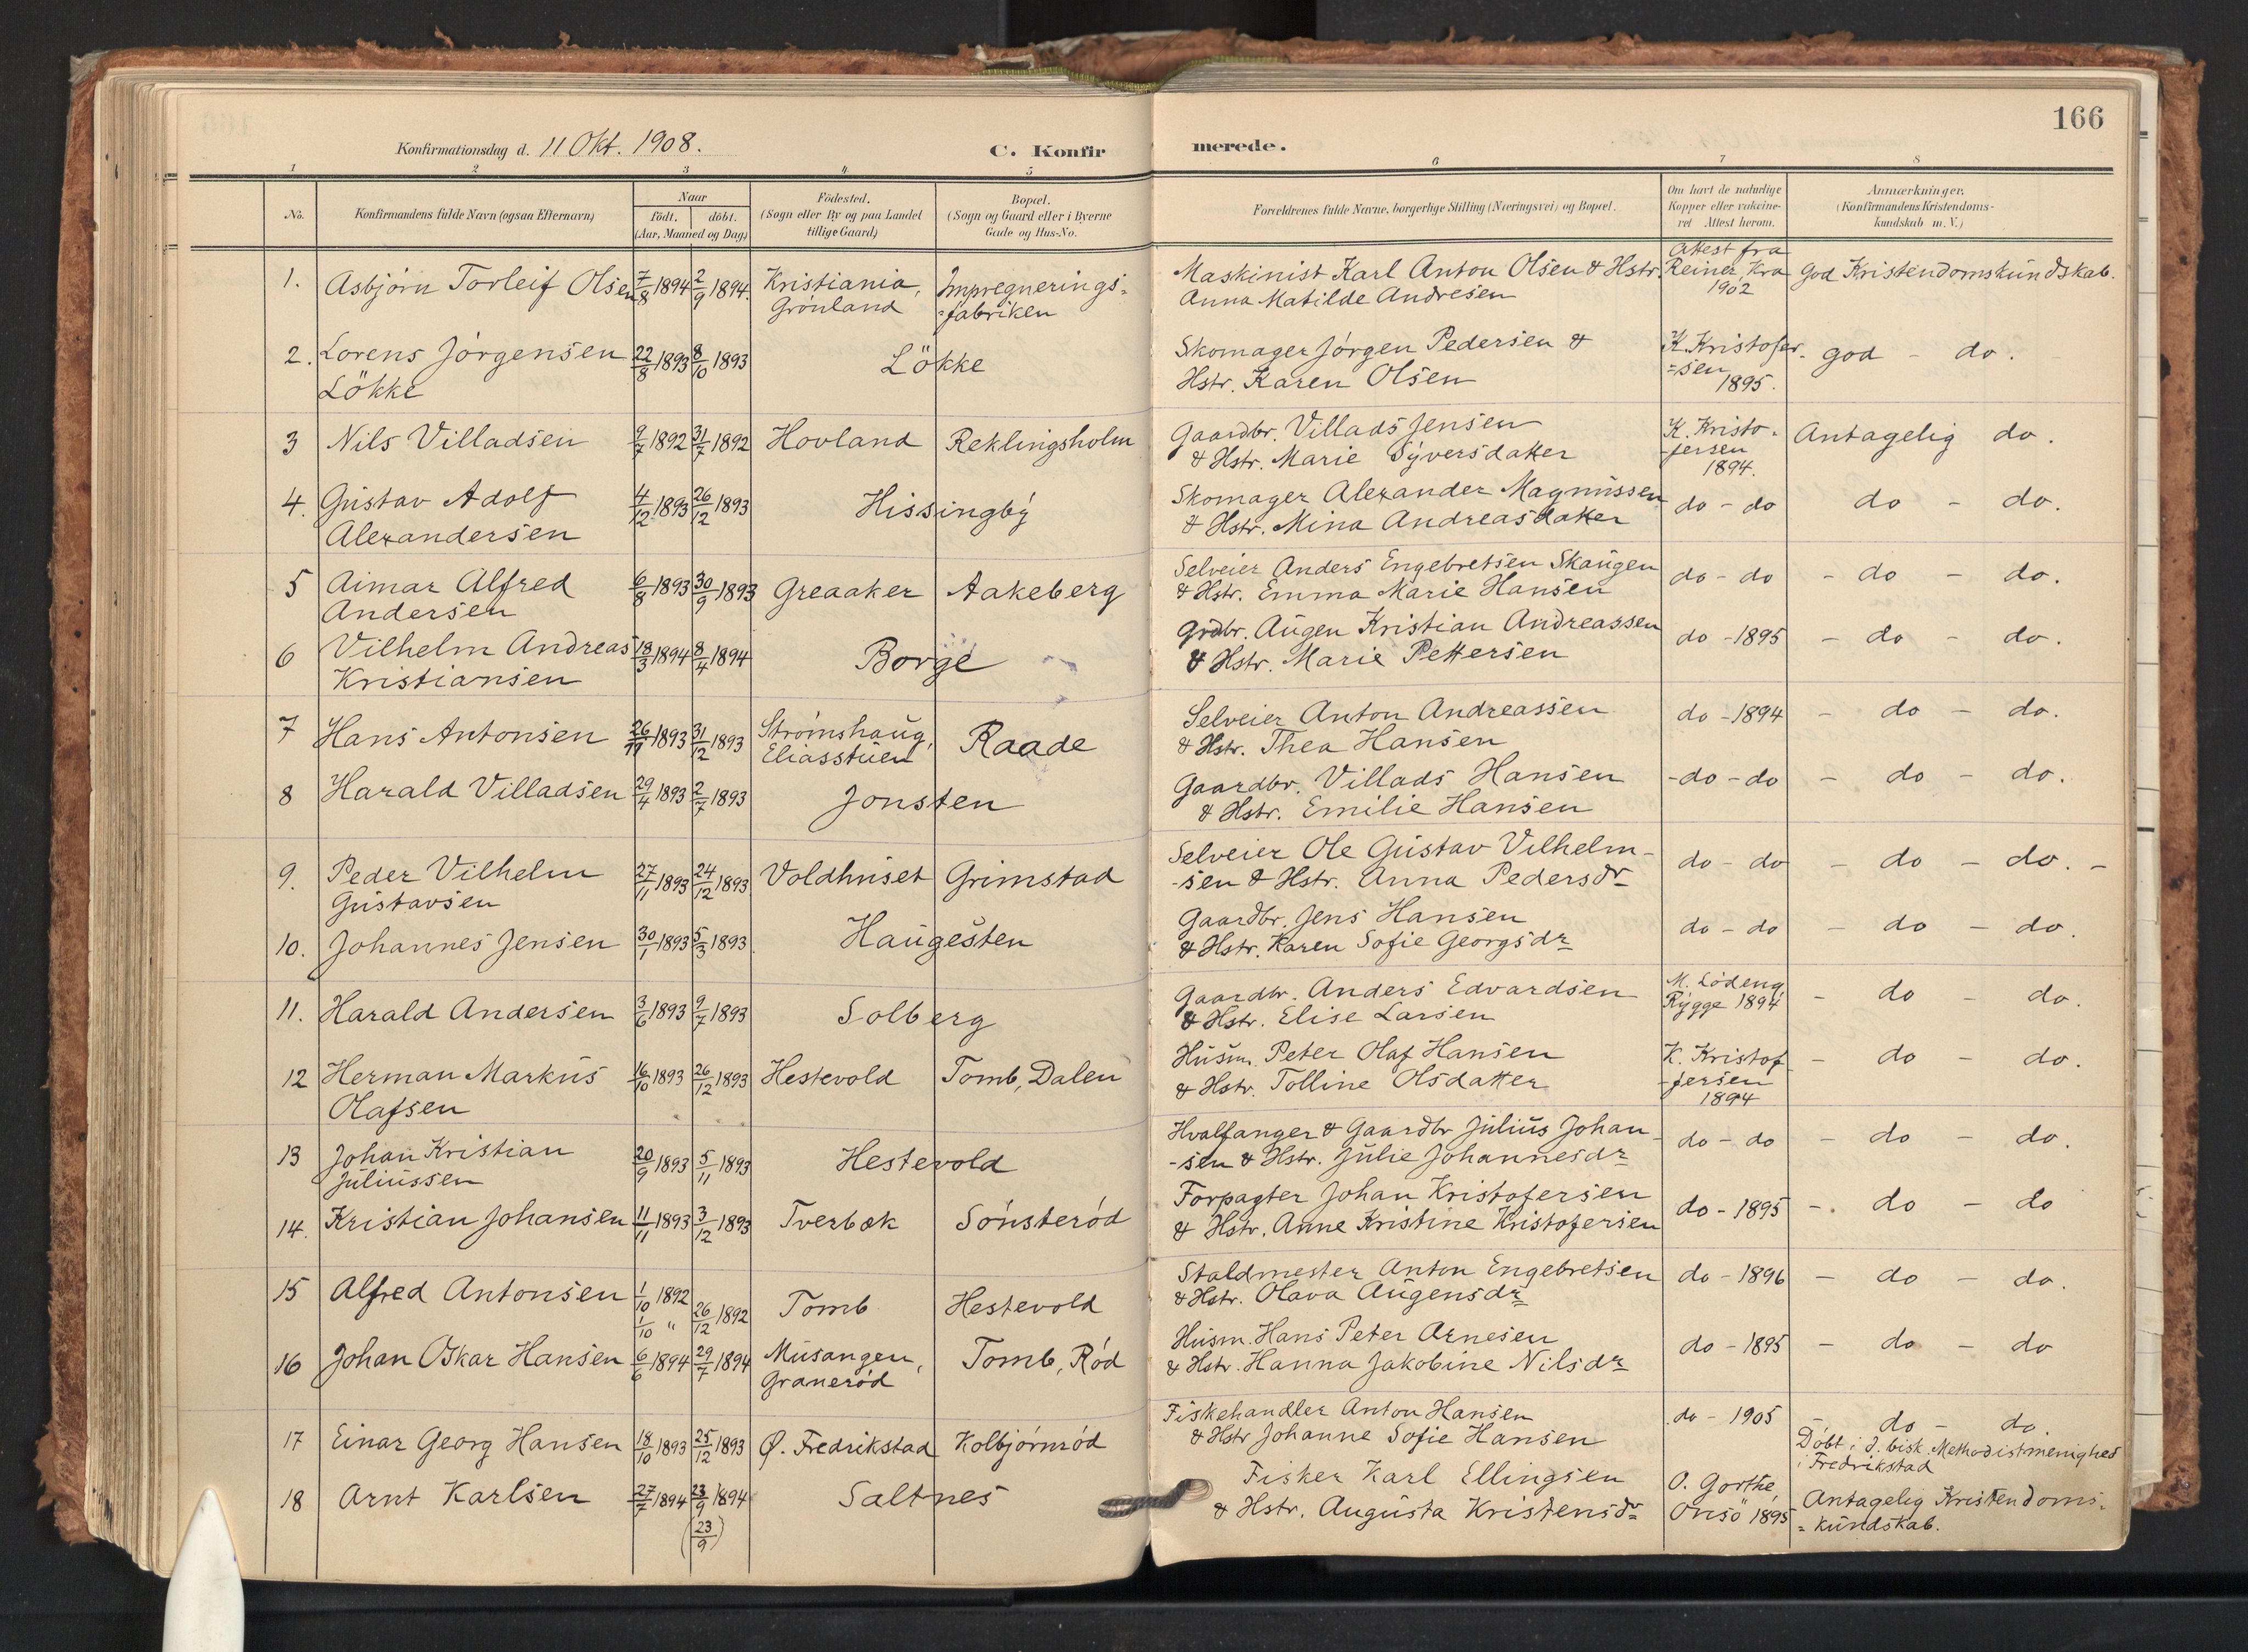 166
Konfirmationsdag d. 11 Okt. 1908. C. Konfirmerede.
1 2 3 4 5 6 7 8
No. Konfirmandens fulde Navn (ogsaa Efternavn) Naar født. døbt. (Aar, Maaned og Dag) Fødested. (Sogn eller By og paa Landet tillige Gaard) Bopæl. (Sogn og Gaard eller i Byerne Gade og Hus-No. Forældrenes fulde Navne, borgerlige Stilling (Næringsvei) og Bopæl. Om havt de naturlige Kopper eller vakcineret Attest herom. Anmærkninger. (Konfirmandens Kristendomskundskab m. V.)
1. Asbjørn Torleif Olsen 7/8 1894 2/9 1894. Kristiania, Grønland Impregnerings= =fabriken Maskinist Karl Anton Olsen & Hstr. Anna Matilde Andresen Attest fra Reiner Kra 1902 god Kristendomskundskab.
2. Lorens Jørgensen Løkke 22/8 1893 8/10 1893 Lökke Skomager Jørgen Pedersen & Hstr. Karen Olsen K. Kristofer- =sen 1895. god - do.
3 Nils Villadsen 9/7 1892 31/7 1892 Hovland Reklingsholm Gaardbr. Villads Jensen & Hstr. Marie Syversdatter K. Kristo- -fersen 1894. Antagelig do.
4. Gustav Adolf Alexandersen 4/12 1893 26/12 1893 Hissingby Skomager Alexander Magnussen & Hstr. Mina Andreasdatter do - do do - do.
5 Aimar Alfred Andersen 6/8 1893 30/9 1893 Greaaker Aakeberg Selveier Anders Engebretsen Skaugen & Hstr. Emma Marie Hansen do - do - do - do.
6 Vilhelm Andreas Kristiansen 18/3 1894 8/4 1894 Borge Grdbr. Augen Kristian Andreassen & Hstr. Marie Pettersen do - 1895 - do - do.
7 Hans Antonsen 26/11 1893 31/12 1893 Strømshaug, Eliasstuen Raade Selveier Anton Andreassen & Hstr. Thea Hansen do - 1894 - do - do.
8 Harald Villadsen 29/4 1893 2/7 1893 Jonsten Gaardbr. Villads Hansen & Hstr. Emilie Hansen - do - do - do - do.
9. Peder Vilhelm Gustavsen 27/11 1893 24/12 1893 Voldhuset Grimstad Selveier Ole Gustav Vilhelm- -sen & Hstr. Anna Pedersdr do - do - do - do. -
10. Johannes Jensen 30/1 1893 5/3 1893. Haugesten Gaardbr. Jens Hansen & Hstr. Karen Sofie Georgsdr do - do - do - do.
11. Harald Andersen 3/6 1893 9/7 1893 Solberg Gaardbr. Anders Edvardsen & Hstr. Elise Larsen M. Lødeng, Rygge 1894 - do - do.
12 Herman Markus Olafsen 16/10 1893 26/12 1893 Hestevold Tomb, Dalen Husm. Peter Olaf Hansen & Hstr. Tolline Olsdatter K. Kristof- -fersen 1894 - do - do.
13 Johan Kristian Juliussen 20/9 1893 5/11 1893 Hestevold Hvalfanger & Gaardbr Julius Johan- -sen & Hstr. Julie Johannesdr do - do - do - do.
14. Kristian Johansen 11/11 1893 3/12 1893 Tverbæk Sønsterød Forpagter Johan Kristofersen & Hstr. Anne Kristine Kristofersen do - 1895 -. do - do
15 Alfred Antonsen 1/10 1892 1/10 " 26/12 1892 Tomb Hestevold Staldmester Anton Engebretsen & Hstr. Olava Augensdr do - 1896 - do - do.
16 Johan Oskar Hansen 6/6 1894 29/7 1894 Musangen, Granerød Tomb, Rød Husm. Hans Peter Arnesen & Hstr. Hanna Jakobine Nilsdr do - 1895 - do - do
17 Einar Georg Hansen 18/10 1893 25/12 1893 Ø. Fredrikstad Kolbjørnrød Fiskehandler Anton Hansen & Hstr Johanne Sofie Hansen do - 1905 - do - do. Døbt i d. bisk. Methodistmenighed i Fredrikstad
18 Arnt Karlsen 27/7 1894 23/9 1894 (23/9) Saltnes Fisker Karl Ellingsen & Hstr. Augusta Kristensdr O. Gorthe, Onsö 1895 Antagelig Kristendoms= =kundskab.